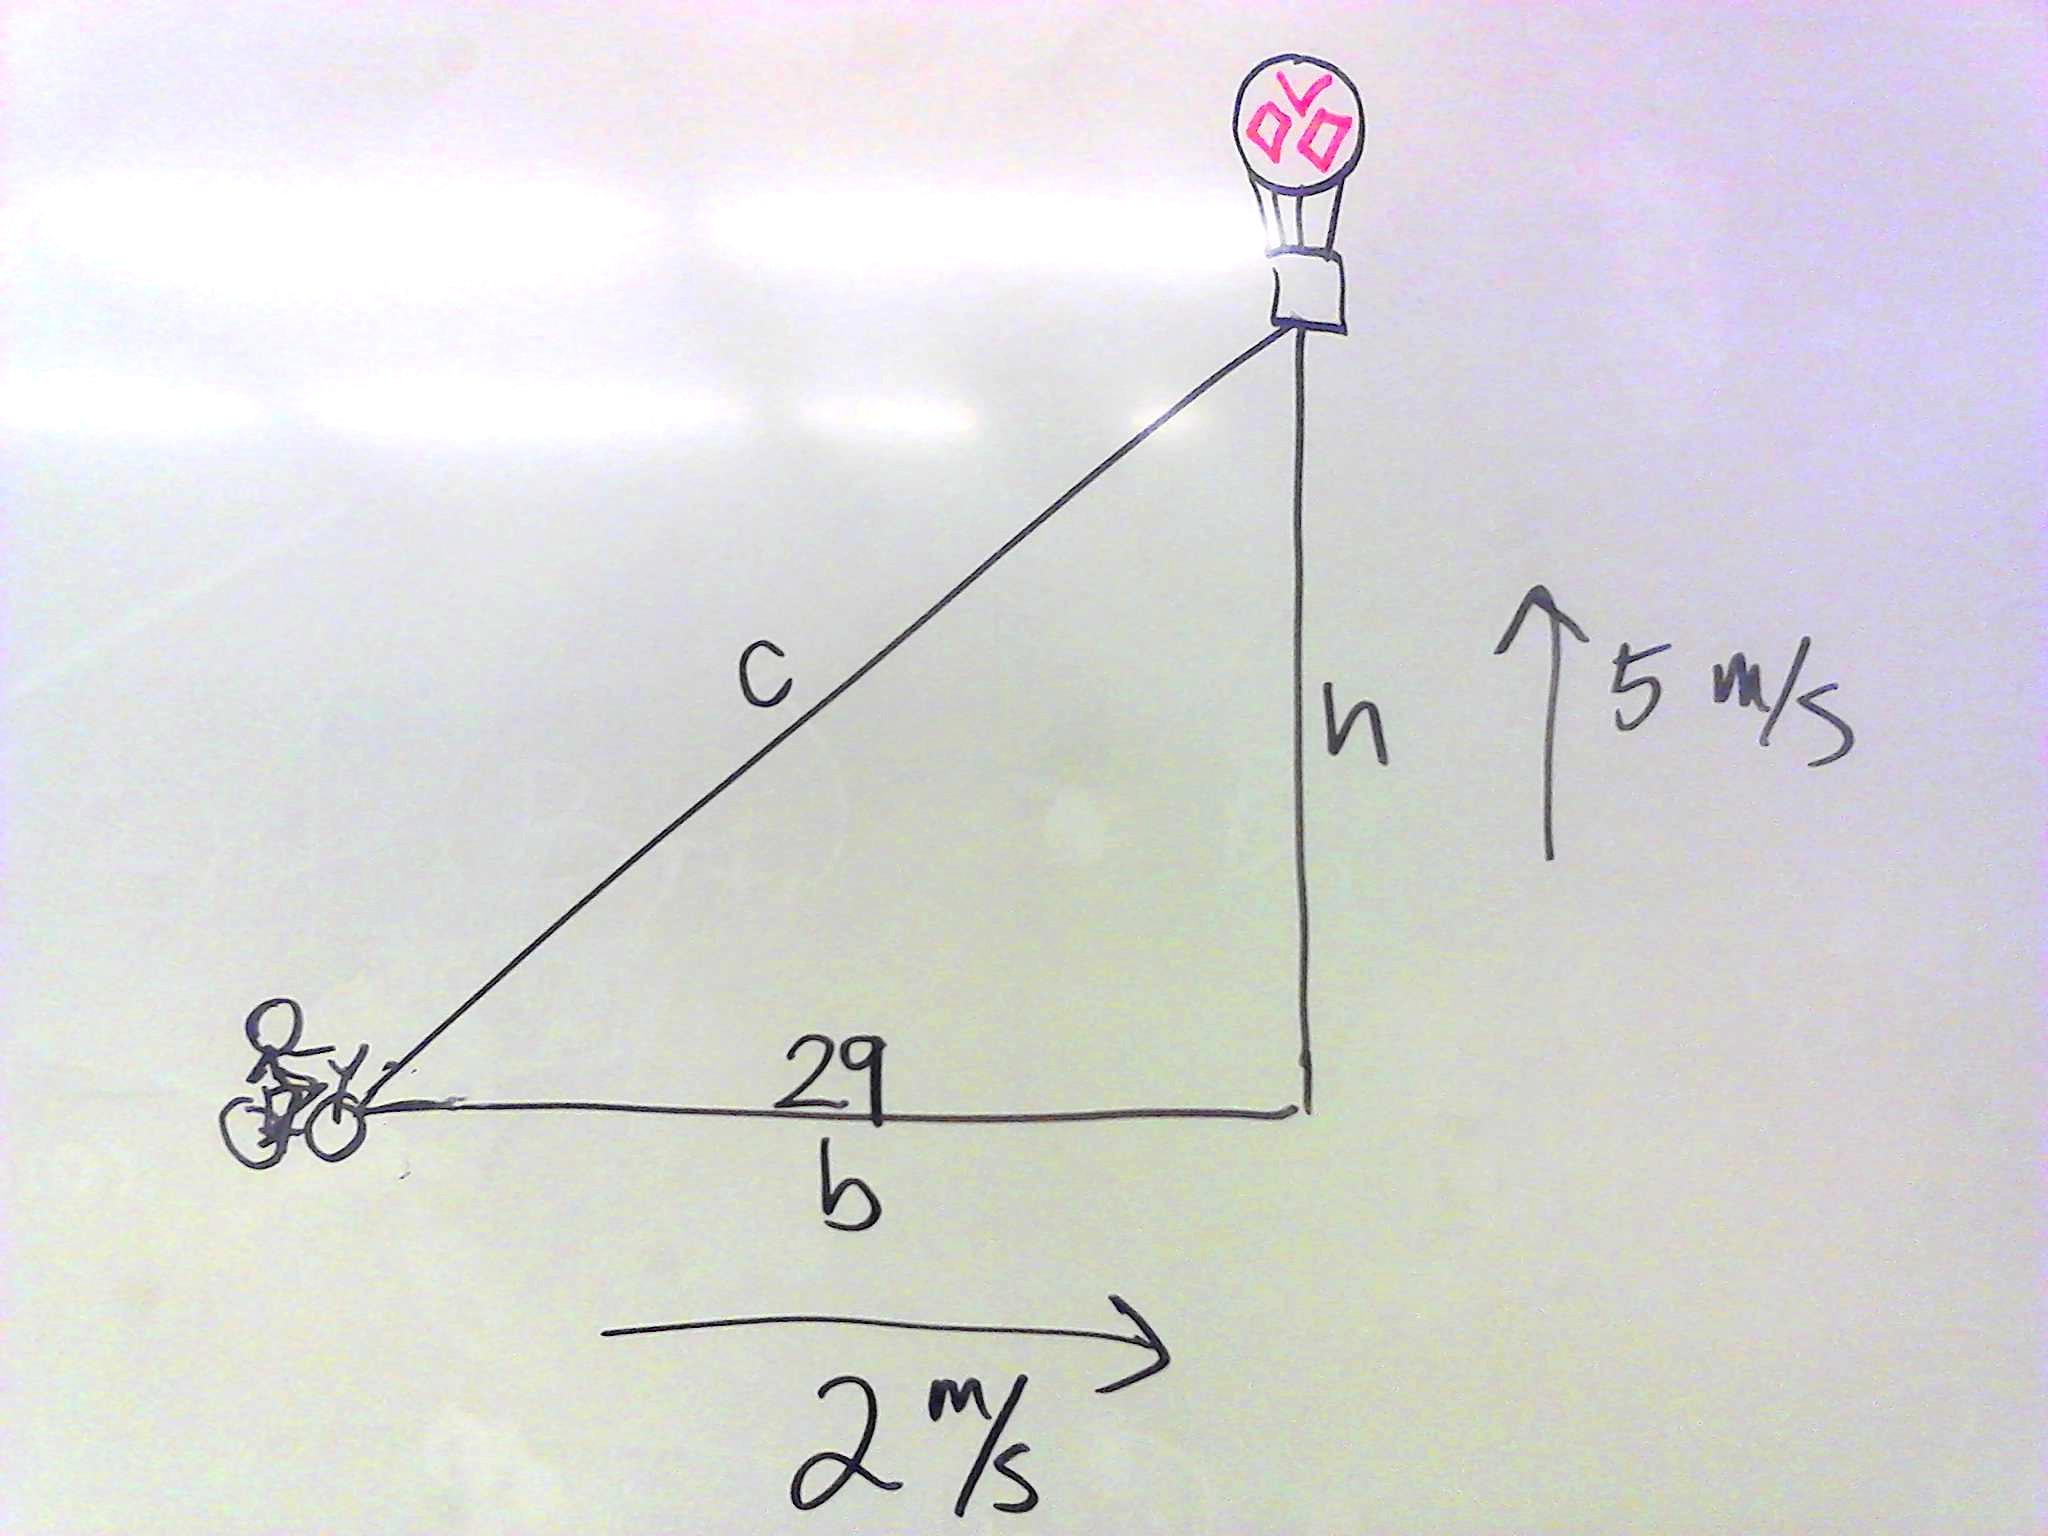 c
h
5 m/s
29
b
2 m/s